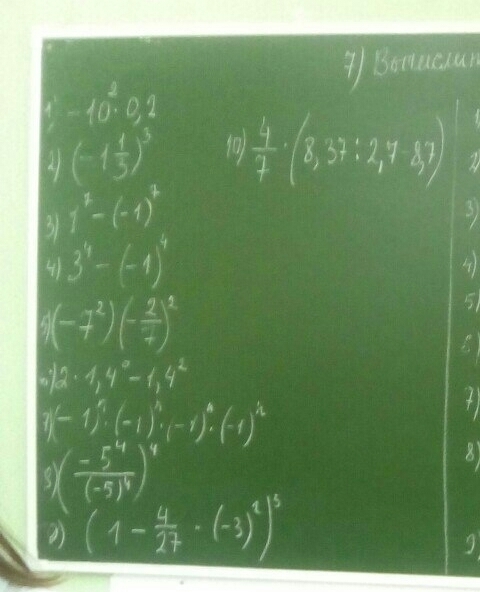 7) Вычислит
1) -10² · 0,2
2) (-1 1/3)³
3) 1⁷ - (-1)⁷
4) 3⁴ - (-1)⁴
5) (-7²)(-2/7)²
2 · 1,4⁰ - 1,4²
7) (-1)ⁿ · (-1)ⁿ · (-1)ⁿ · (-1)ⁿ
8) (-5⁴/(-5)⁴)⁴
(1 - 4/27 · (-3)²)³
10) 4/7 · (8,37 : 2,7 - 8,7)
3)
4)
5)
6)
7)
8)
9)